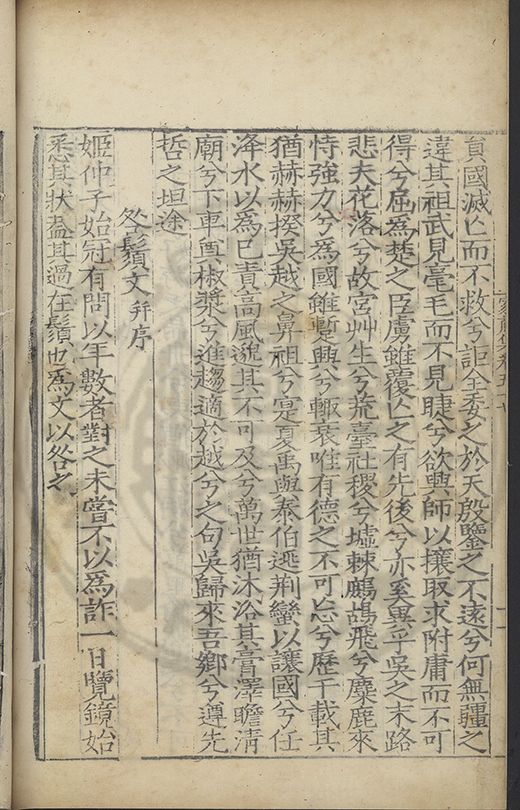 負國滅亾而不救兮詎全委之於天殷鑒之不遠兮何無疆之
違其祖武見毫毛而不見睫兮欲興師以攘取求附庸而不可
得兮屈爲楚之臣虜雖覆亾之有先後兮亦奚異乎吳之末路
悲夫花落兮故宮艸生兮荒臺社稷兮墟棘鷓鴣飛兮麋鹿來
恃強力兮爲國雖蹔興兮輙衰唯有德之不可忘兮歷千載其
猶赫赫揆吳越之鼻祖兮寔夏禹與泰伯逃荆蠻以讓國兮任
洚水以爲已責高風邈其不可及兮萬世猶沐浴其膏澤瞻淸
廟兮下車奠椒漿兮進趨適於越兮之句吳歸來吾鄉兮遵先
哲之坦途
咎鬚文幷序
姬仲子始冠有問以年數者對之未嘗不以爲詐一日覽鏡始
悉其狀葢其過在鬚也爲文以咎之